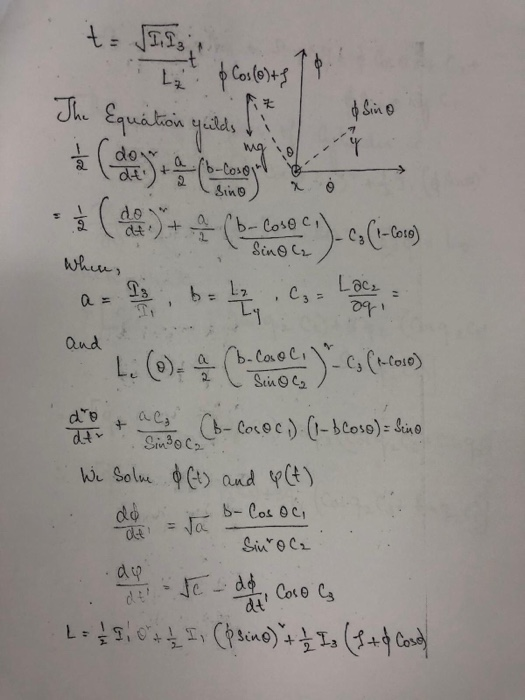 t = √(I₁I₃)/L_z t'
ϕ Cos(θ)+ʃ
ϕ
z
ϕ Sin θ
y
mg
θ
x
θ̇
The Equation yeilds
1/2 (dθ/dt')² + a/2 (b-Cosθ/Sinθ)²
= 1/2 (dθ/dt')² + a/2 (b-Cosθ C₁/Sinθ C₂) - C₃ (1-Cosθ)
Where,
a = I₃/I₁, b = L_z/L_y, C₃ = L∂C₂/∂q₁ =
and
L_c (θ) = a/2 (b-Cosθ C₁/Sinθ C₂)² - C₃ (1-Cosθ)
d²θ/dt² + aC₃/Sin³θC₂ (b-Cosθ C₁) (1-bCosθ) = Sinθ
We Solve ϕ(t) and φ(t)
dϕ/dt' = √a b-Cos θC₁/Sin²θC₂
dφ/dt' = √c - dϕ/dt' Cosθ C₃
L = 1/2 I₁ θ² + 1/2 I₁ (ϕ sinθ)² + 1/2 I₃ (ʃ+ϕ Cosθ)